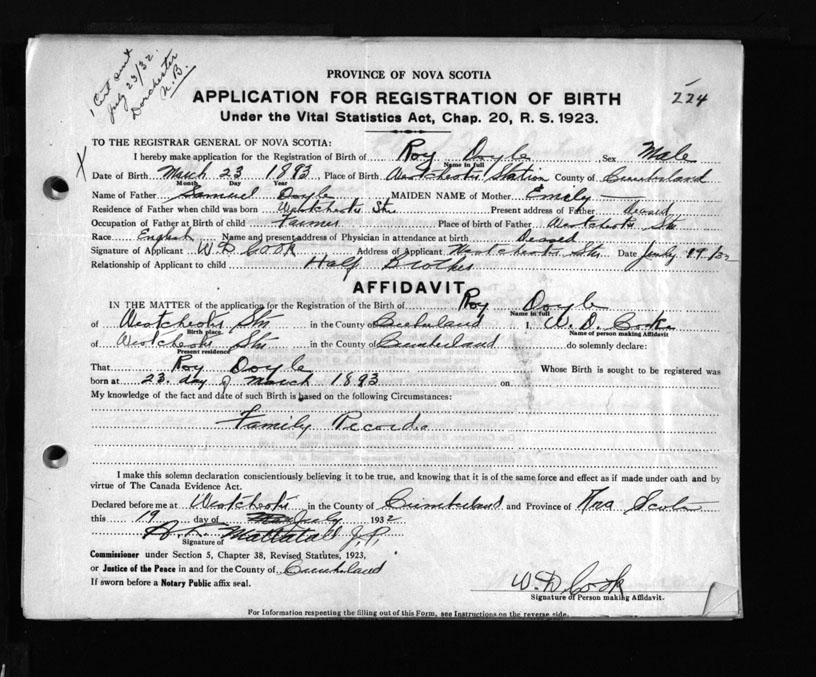 1 Cert sent
July 23/32
Dorchester
N.B.
224
PROVINCE OF NOVA SCOTIA
APPLICATION FOR REGISTRATION OF BIRTH
Under the Vital Statistics Act, Chap. 20, R. S. 1923.
TO THE REGISTRAR GENERAL OF NOVA SCOTIA:
I hereby make application for the Registration of Birth of Roy Doyle Sex Male
Name in full
X Date of Birth March 23 1893 Place of Birth Westchester Station County of Cumberland
Month Day Year
Name of Father Samuel Doyle MAIDEN NAME of Mother Emily
Residence of Father when child was born Westchester Stn Present address of Father Deceased
Occupation of Father at Birth of child Farmer Place of birth of Father Westchester Stn
Race English Name and present address of Physician in attendance at birth Deceased
Signature of Applicant W. D COOK Address of Applicant Westchester Stn. Date July 19/32
Relationship of Applicant to child Half Brother
AFFIDAVIT
IN THE MATTER of the application for the Registration of the Birth of Roy Doyle
Name in full
of Westchester Stn in the County of Cumberland I, W. D. Cook
Birth place. Name of person making Affidavit
of Westchester Stn in the County of Cumberland do solemnly declare:
Present residence
That Roy Doyle Whose Birth is sought to be registered was
born at 23. day of March 1893 on
My knowledge of the fact and date of such Birth is based on the following Circumstances:
Family Records
I make this solemn declaration conscientiously believing it to be true, and knowing that it is of the same force and effect as if made under oath and by
virtue of The Canada Evidence Act.
Declared before me at Westchester in the County of Cumberland and Province of Nova Scotia
this 19 day of July 1932
Mattatall J.P.
Signature of
Commissioner under Section 5, Chapter 38, Revised Statutes, 1923,
or Justice of the Peace in and for the County of Cumberland
If sworn before a Notary Public affix seal.
W. D Cook
Signature of Person making Affidavit.
For Information respecting the filling out of this Form, see Instructions on the reverse side.